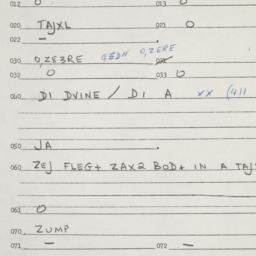 012 O 013 O
020 TAJXL 021 O
022 –
030 O,ZE3RE GEDN O,ZERE
032 O 033 O
040 DI DVINE / DI A xx (411
050 JA
060 ZEJ FLEG+ ZAX2 BOD+ IN A TAJ
061 O
070 ZUMP
071 – 072 –